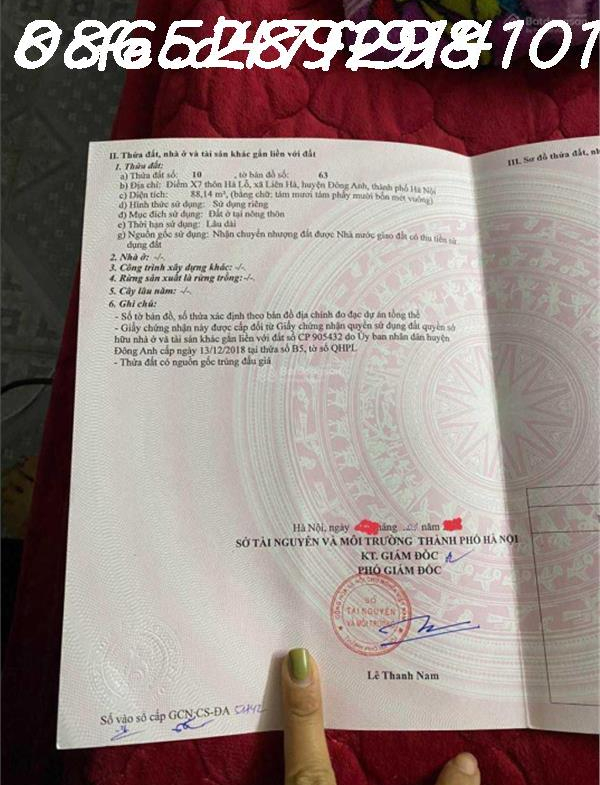 II. Thửa đất, nhà ở và tài sản khác gắn liền với đất
III. Sơ đồ thửa đất,
1. Thửa đất:
a) Thửa đất số: 10 , tờ bản đồ số: 63
b) Địa chỉ: Điểm X7 thôn Hà Lỗ, xã Liên Hà, huyện Đông Anh, thành phố Hà Nội
c) Diện tích: 88,14 m², (bằng chữ: tám mươi tám phẩy mười bốn mét vuông)
d) Hình thức sử dụng: Sử dụng riêng
đ) Mục đích sử dụng: Đất ở tại nông thôn
e) Thời hạn sử dụng: Lâu dài
g) Nguồn gốc sử dụng: Nhận chuyển nhượng đất được Nhà nước giao đất có thu tiền sử
dụng đất
2. Nhà ở: -/-.
3. Công trình xây dựng khác: -/-.
4. Rừng sản xuất là rừng trồng:-/-.
5. Cây lâu năm: -/-.
6. Ghi chú:
- Số tờ bản đồ, số thửa xác định theo bản đồ địa chính đo đạc dự án tổng thể
- Giấy chứng nhận này được cấp đổi từ Giấy chứng nhận quyền sử dụng đất quyền sở
hữu nhà ở và tài sản khác gắn liền với đất số CP 905432 do Ủy ban nhân dân huyện
Đông Anh cấp ngày 13/12/2018 tại thửa số B5, tờ số QHPL
- Thửa đất có nguồn gốc trúng đấu giá
Hà Nội, ngày tháng năm
SỞ TÀI NGUYÊN VÀ MÔI TRƯỜNG THÀNH PHỐ HÀ NỘI
KT. GIÁM ĐỐC
PHÓ GIÁM ĐỐC
SỞ
TÀI NGUYÊN
VÀ MÔI TRƯỜNG
Lê Thanh Nam
Số vào sổ cấp GCN:CS-ĐA